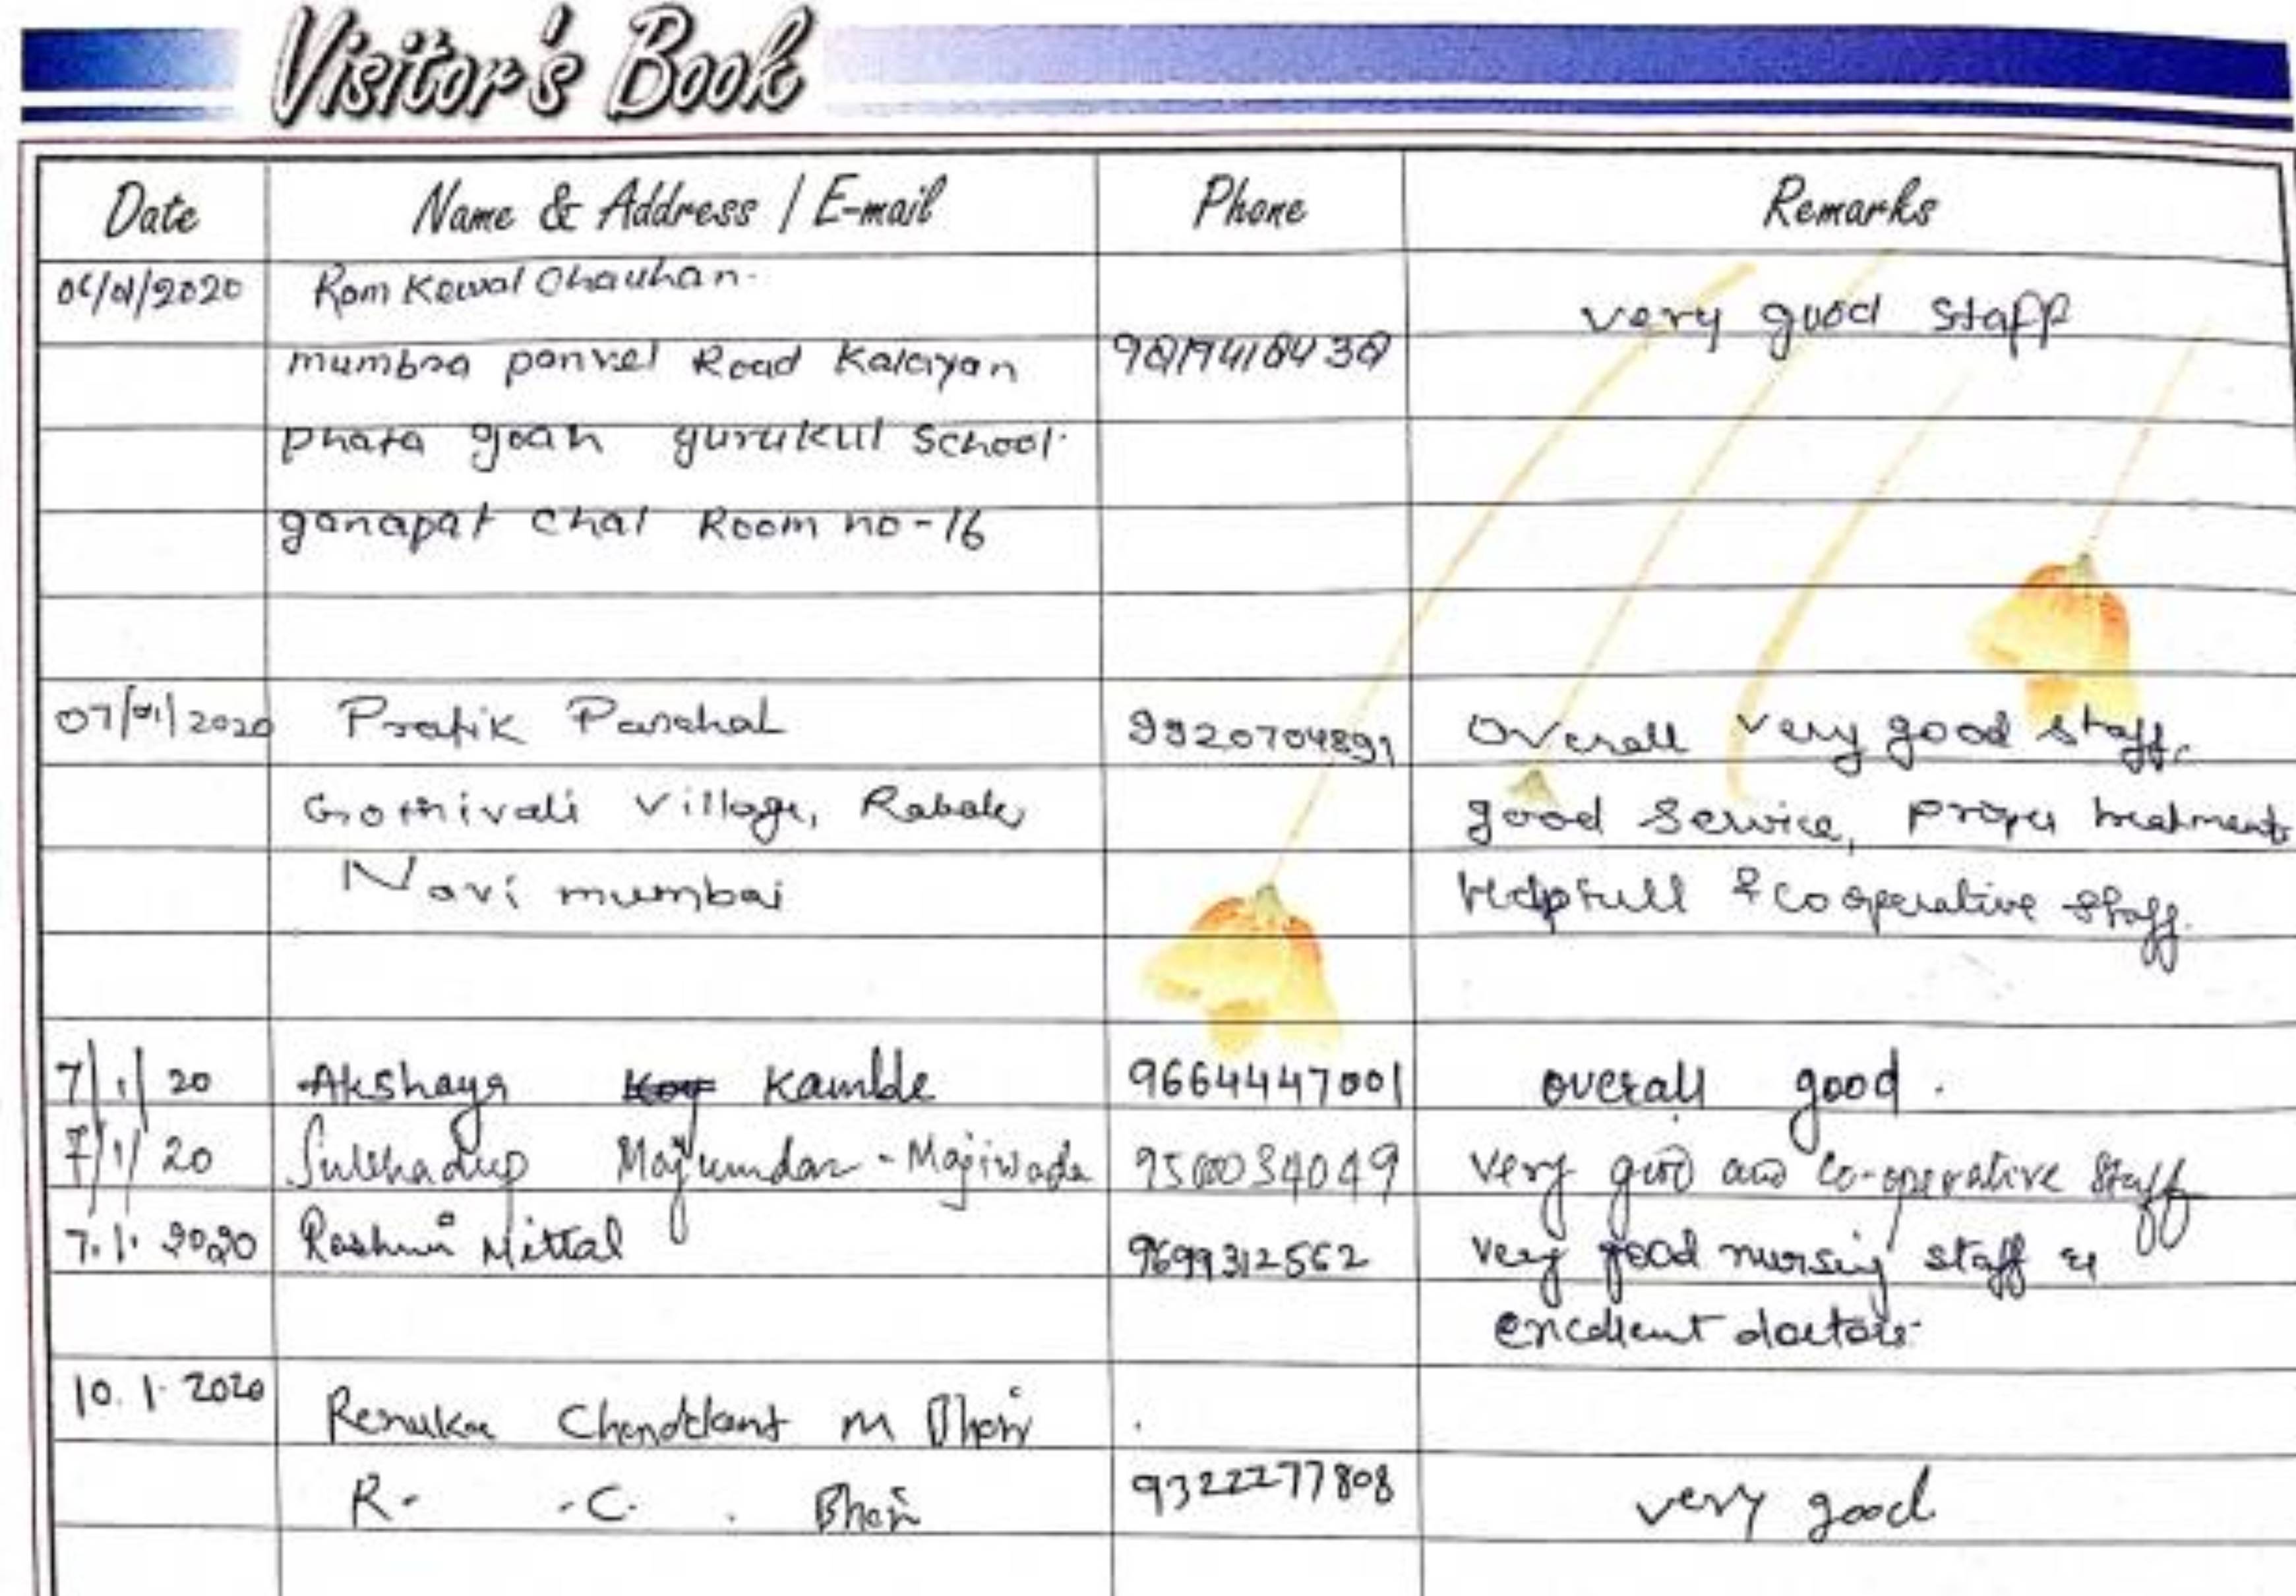 Visitor's Book
Date Name & Address / E-mail Phone Remarks
Ram Kewal Chauhan.
very good staff
mumbra panvel Road Kalayan
phata goan gurukul School.
ganapat chal Room no-16
07/01/2020 Pratik Panchal 9920704891 Overall very good staff,
Gothivali Village, Rabale good Service, proper treatment
Navi mumbai Helpfull & Cooperative staff.
7/1/20 Akshaya Kamble 9664447001 overall good.
7/1/20 Majumdar - Majiwada very good and co-operative staff
7.1.2020 Rashmi Mittal 9699312562 very good nursing staff &
excellent doctors.
10.1.2020 Renuka M Bhoir
R. C. Bhoir 9322277808 very good